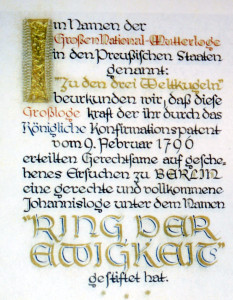 Im Namen der
Großen National-Mutterloge
in den Preußischen Staaten
genannt:
"Zu den drei Weltkugeln"
beurkunden wir, daß diese
Großloge kraft der ihr durch das
Königliche Konfirmationspatent
vom 9. Februar 1796
erteilten Gerechtsame auf gesche-
henes Ersuchen zu BERLIN
eine gerechte und vollkommene
Johannisloge unter dem Namen
"RING DER
EWIGKEIT"
gestiftet hat.